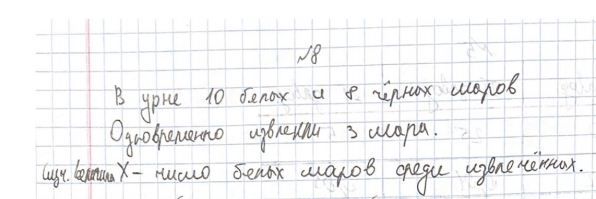 №8
В урне 10 белых и 8 чёрных шаров
Одновременно извлекли 3 шара.
Случ. величина X - число белых шаров среди извлечённых.